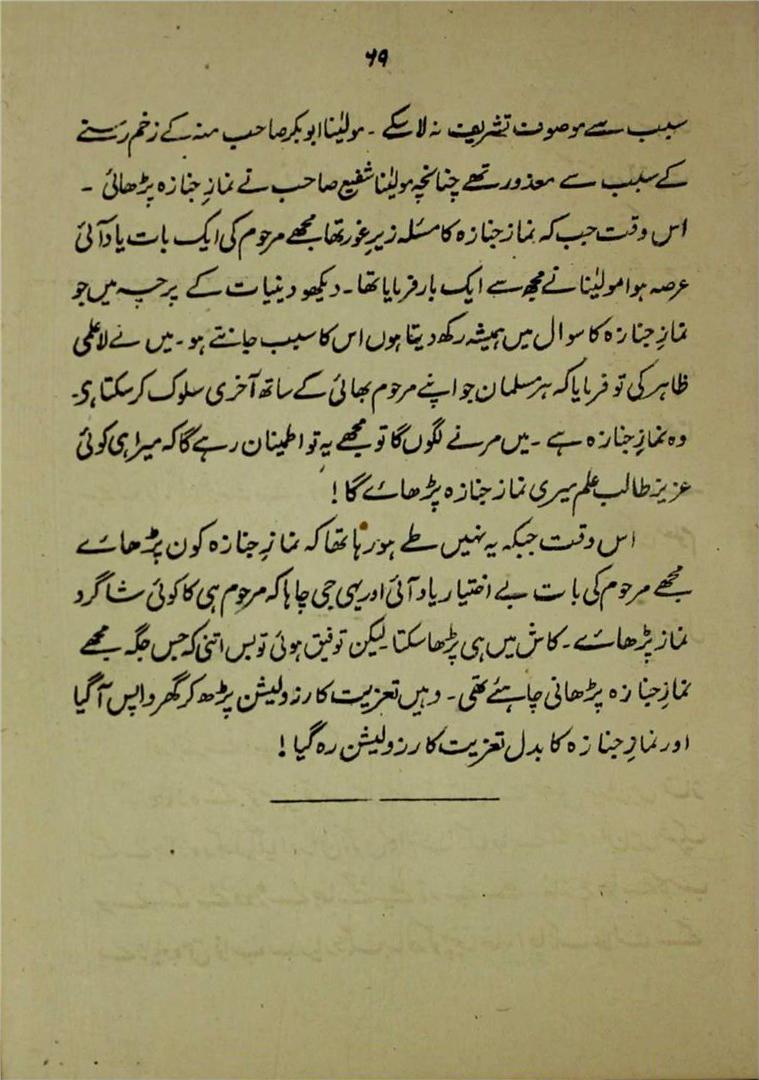 ۶۹
سبب سے موصوف تشریف نہ لا سکے ۔ مولیٰنا ابوبکر صاحب منہ کے زخم رسنے
کے سبب سے معذور تھے چنانچہ مولیٰنا شفیع صاحب نے نمازِ جنازہ پڑھائی ۔
اس وقت جب کہ نماز جنازہ کا مسئلہ زیرِ غور تھا مجھے مرحوم کی ایک بات یاد آئی
عرصہ ہوا مولیٰنا نے مجھ سے ایک بار فرمایا تھا ۔ دیکھو دینیات کے پرچہ میں جو
نمازِ جنازہ کا سوال میں ہمیشہ رکھ دیتا ہوں اس کا سبب جانتے ہو ۔ میں نے لاعلمی
ظاہر کی تو فرمایا کہ ہر مسلمان جو اپنے مرحوم بھائی کے ساتھ آخری سلوک کر سکتا ہی۔
وہ نمازِ جنازہ ہے ۔ میں مرنے لگوں گا تو مجھے یہ تو اطمینان رہے گا کہ میرا ہی کوئی
عزیز طالب علم میری نماز جنازہ پڑھائے گا !
اس وقت جبکہ یہ نہیں طے ہو رہا تھا کہ نمازِ جنازہ کون پڑھائے
مجھے مرحوم کی بات بے اختیار یاد آئی اور یہی جی چاہا کہ مرحوم ہی کا کوئی شاگرد
نماز پڑھائے ۔ کاش میں ہی پڑھا سکتا لیکن توفیق ہوئی تو بس اتنی کہ جس جگہ مجھے
نمازِ جنازہ پڑھانی چاہئے تھی ۔ وہیں تعزیت کا رزولیشن پڑھ کر گھر واپس آگیا
اور نمازِ جنازہ کا بدل تعزیت کا رزولیشن رہ گیا !